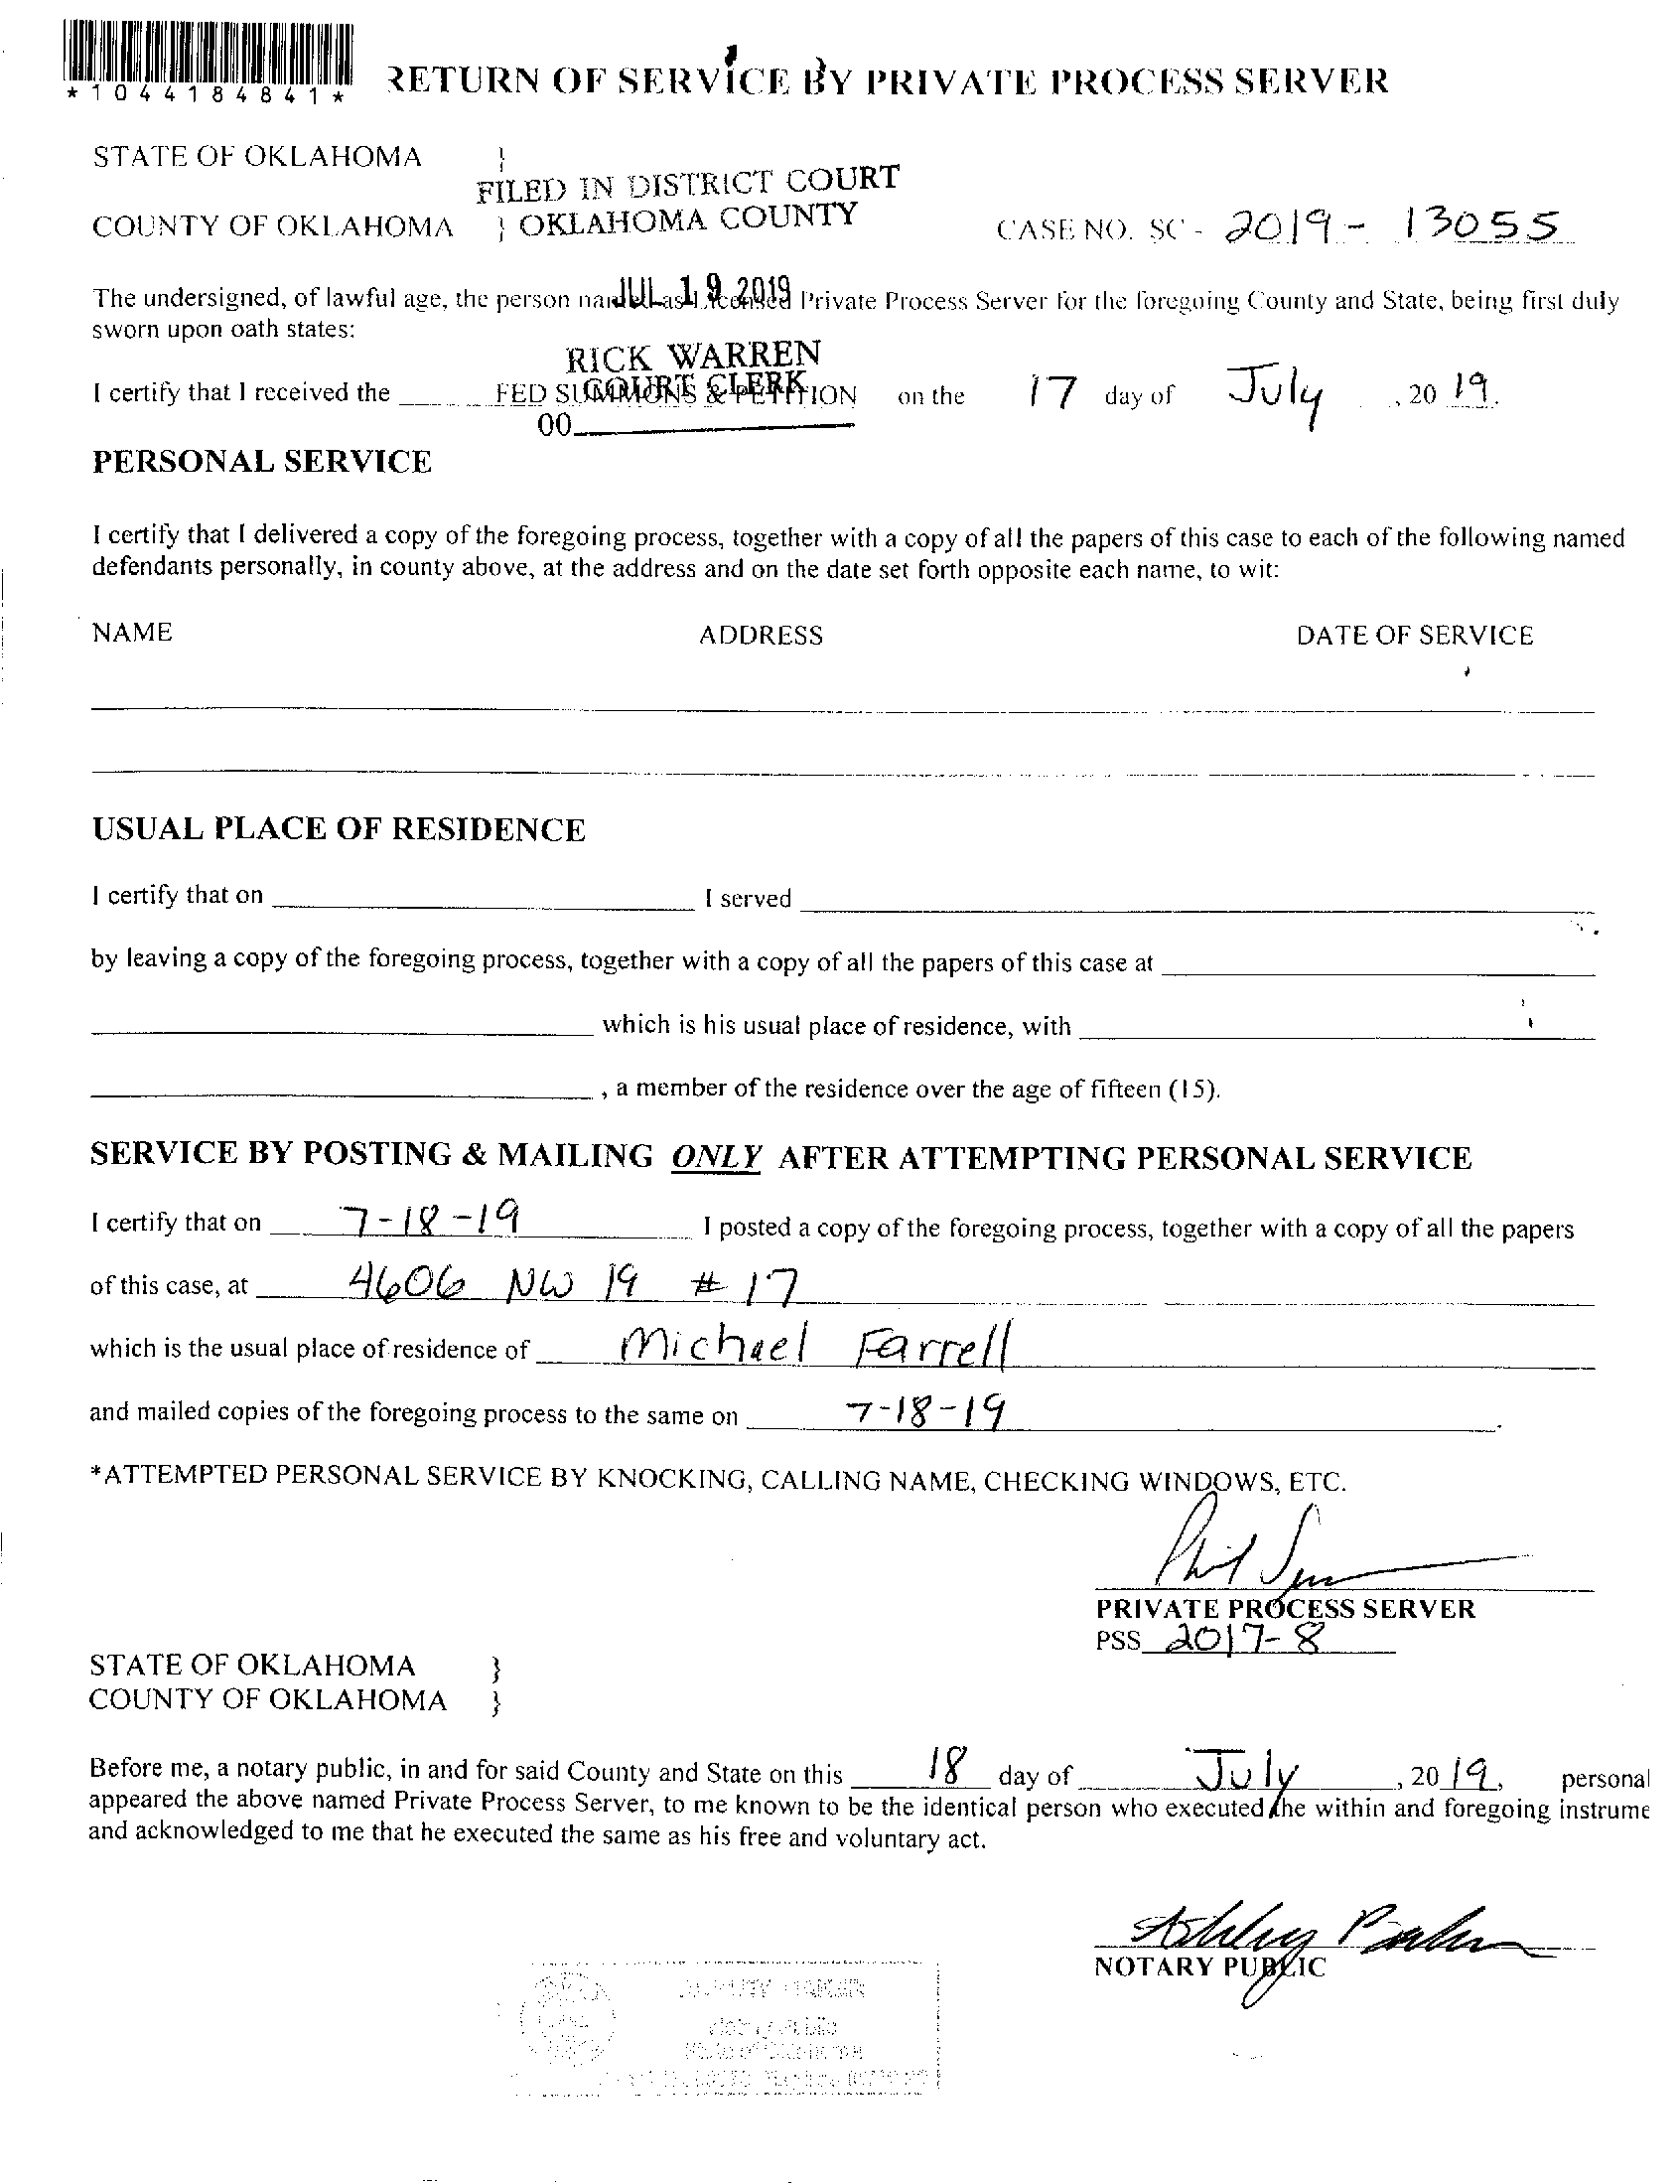 *1044184841*
RETURN OF SERVICE BY PRIVATE PROCESS SERVER
STATE OF OKLAHOMA }
FILED IN DISTRICT COURT
COUNTY OF OKLAHOMA } OKLAHOMA COUNTY CASE NO. SC - 2019 - 13055
JUL 19 2019
The undersigned, of lawful age, the person named as Licensed Private Process Server for the foregoing County and State, being first duly
sworn upon oath states:
RICK WARREN
COURT CLERK
I certify that I received the FED SUMMONS & PETITION on the 17 day of July, 20 19.
00
PERSONAL SERVICE
I certify that I delivered a copy of the foregoing process, together with a copy of all the papers of this case to each of the following named
defendants personally, in county above, at the address and on the date set forth opposite each name, to wit:
NAME ADDRESS DATE OF SERVICE
USUAL PLACE OF RESIDENCE
I certify that on I served
by leaving a copy of the foregoing process, together with a copy of all the papers of this case at
which is his usual place of residence, with
, a member of the residence over the age of fifteen (15).
SERVICE BY POSTING & MAILING ONLY AFTER ATTEMPTING PERSONAL SERVICE
I certify that on 7-18-19 I posted a copy of the foregoing process, together with a copy of all the papers
of this case, at 4606 NW 19 # 17
which is the usual place of residence of Michael Farrell
and mailed copies of the foregoing process to the same on 7-18-19.
*ATTEMPTED PERSONAL SERVICE BY KNOCKING, CALLING NAME, CHECKING WINDOWS, ETC.
Phil
PRIVATE PROCESS SERVER
PSS 2017-8
STATE OF OKLAHOMA }
COUNTY OF OKLAHOMA }
Before me, a notary public, in and for said County and State on this 18 day of July, 20 19, personal
appeared the above named Private Process Server, to me known to be the identical person who executed the within and foregoing instrume
and acknowledged to me that he executed the same as his free and voluntary act.
Ashley
NOTARY PUBLIC
Notary Public